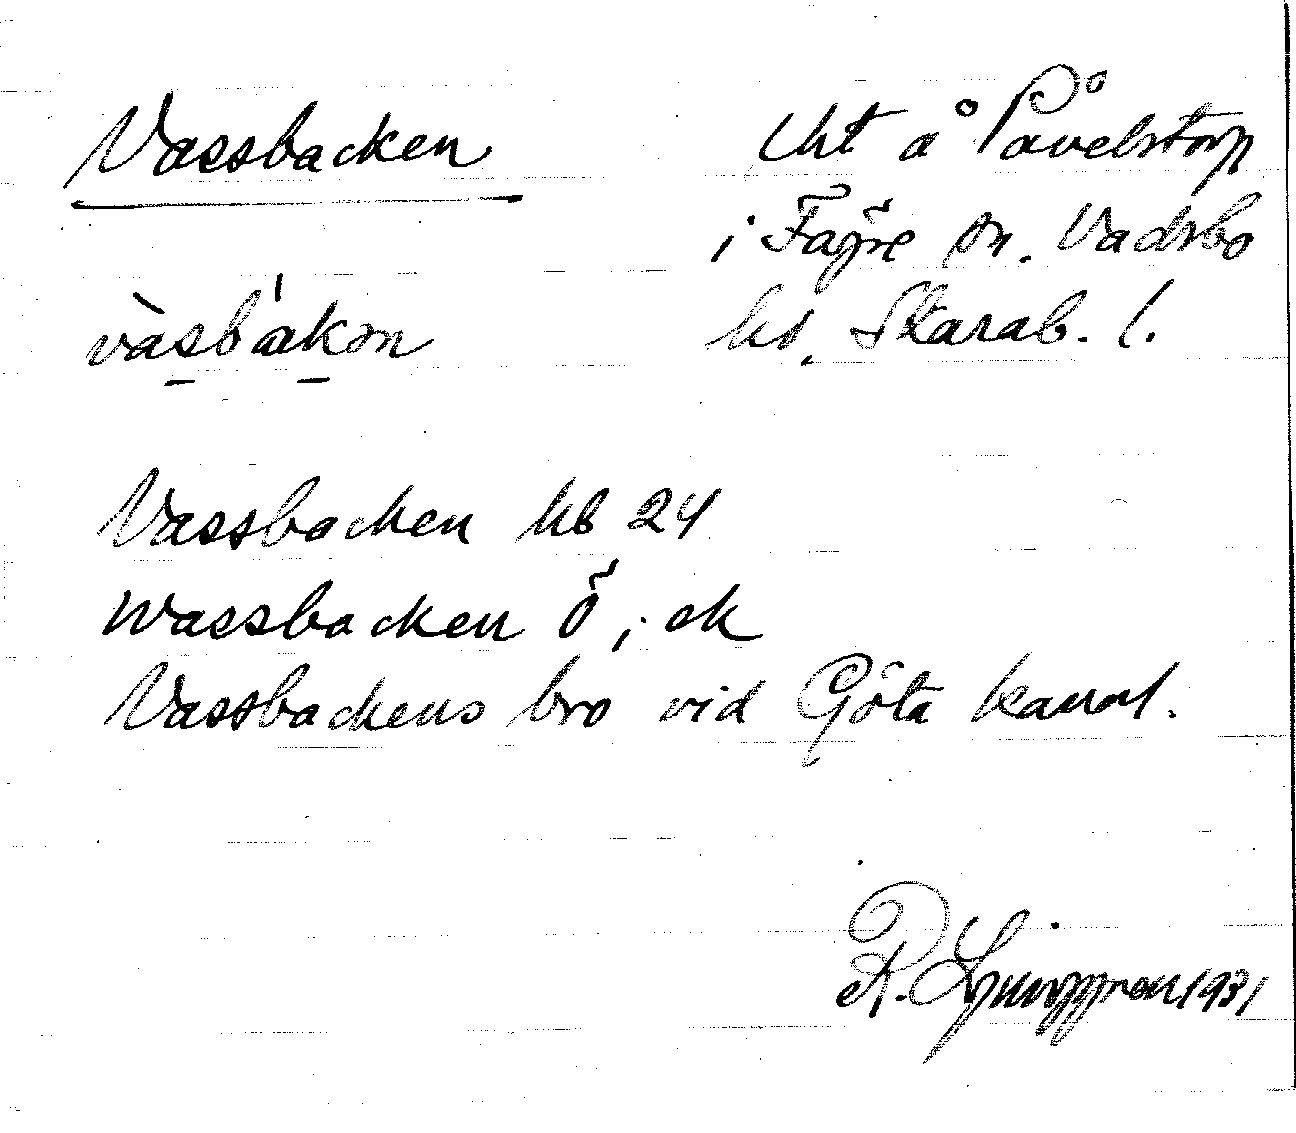 Vassbacken
Lht å Påvelstorp
i Fägre sn. Vadsbo
hd, Skarab. l.
vàsbákən
Vassbacken hb 24
Wassbacken Ö, ek
Vassbackens bro vid Göta kanal.
R. Ljunggren 1931